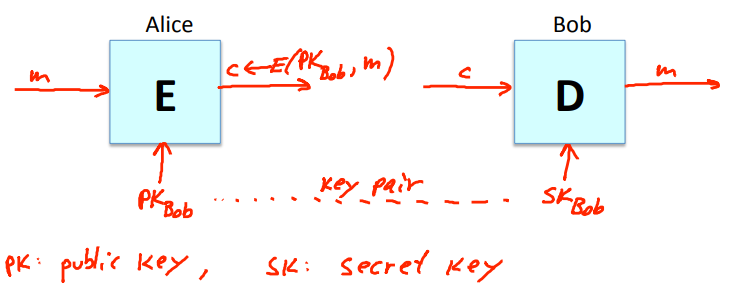 Alice Bob
m c ← E(PK_Bob, m) c m
E D
PK_Bob key pair SK_Bob
PK: public key, SK: secret key